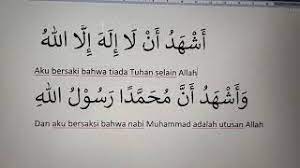 أَشْهَدُ أَنْ لَا إِلَهَ إِلَّا اللهُ
Aku bersaki bahwa tiada Tuhan selain Allah
وَأَشْهَدُ أَنَّ مُحَمَّدًا رَسُوْلُ اللهِ
Dan aku bersaksi bahwa nabi Muhammad adalah utusan Allah